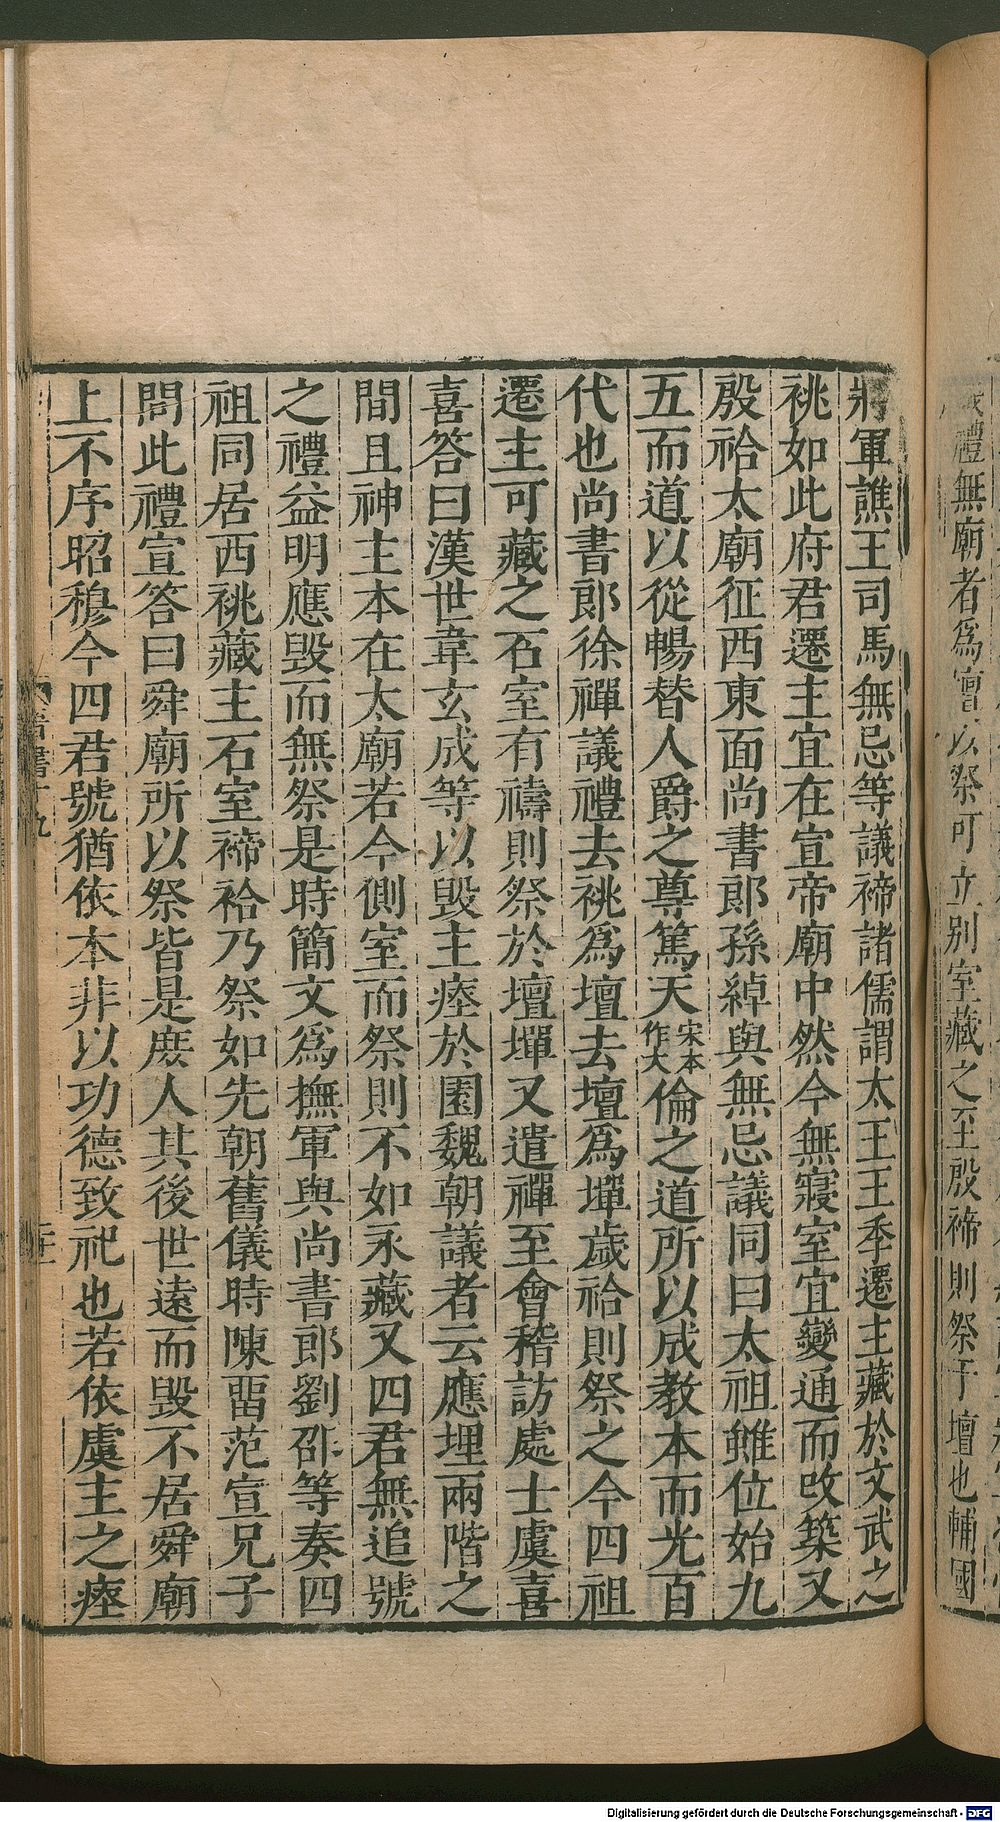 歲禮無廟者爲壇以祭可立別室藏之至殷禘則祭于壇也輔國
將軍譙王司馬無忌等議禘諸儒謂太王王季遷主藏於文武之
祧如此府君遷主宜在宣帝廟中然今無寢室宜變通而改築又
殷祫太廟征西東面尚書郎孫綽與無忌議同曰太祖雖位始九
五而道以從暢替人爵之尊篤天宋本作大倫之道所以成教本而光百
代也尚書郎徐禪議禮去祧爲壇去壇爲墠歲祫則祭之今四祖
遷主可藏之石室有禱則祭於壇墠又遣禪至會稽訪處士虞喜
喜答曰漢世韋玄成等以毀主瘞於園魏朝議者云應埋兩階之
間且神主本在太廟若今側室而祭則不如永藏又四君無追號
之禮益明應毀而無祭是時簡文爲撫軍與尚書郎劉邵等奏四
祖同居西祧藏主石室禘祫乃祭如先朝舊儀時陳畱范宣兄子
問此禮宣答曰舜廟所以祭皆是庶人其後世遠而毀不居舜廟
上不序昭穆今四君號猶依本非以功德致祀也若依虞主之瘞
晉書十九
Digitalisierung gefördert durch die Deutsche Forschungsgemeinschaft - DFG